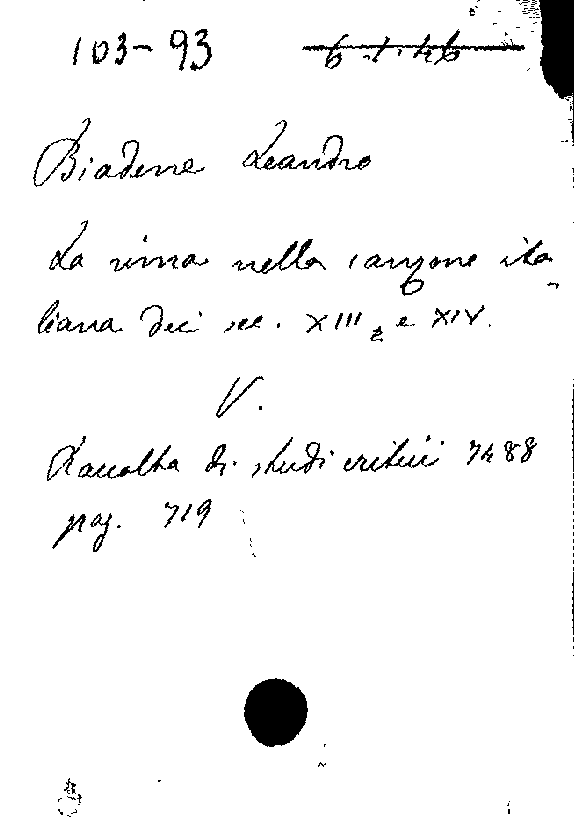 103-93 6.1.46
Biadene Leandro
La rima nella canzone ita
liana dei sec. XIII e XIV.
V.
Raccolta di studi critici 7488
pag. 719